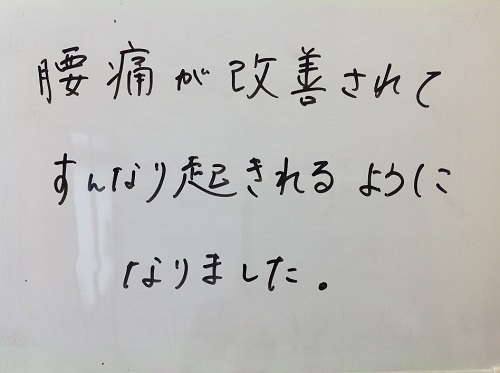 腰痛が改善されて
すんなり起きれるように
なりました。